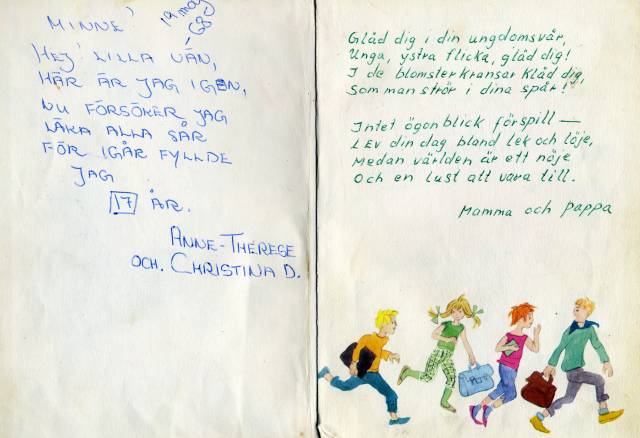 MINNE!
19 maj
HEJ LILLA VÄN,
HÄR ÄR JAG IGEN,
NU FÖRSÖKER JAG
LÄKA ALLA SÅR
FÖR IGÅR FYLLDE
JAG
17 ÅR.
ANNE-THERESE
OCH. CHRISTINA D.
Gläd dig i din ungdomsvår,
Unga, ystra flicka, gläd dig!
I de blomsterkransar kläd dig,
Som man strör i dina spår!
Intet ögonblick förspill —
LEV din dag bland lek och löje,
Medan världen är ett nöje
Och en lust att vara till.
Mamma och pappa